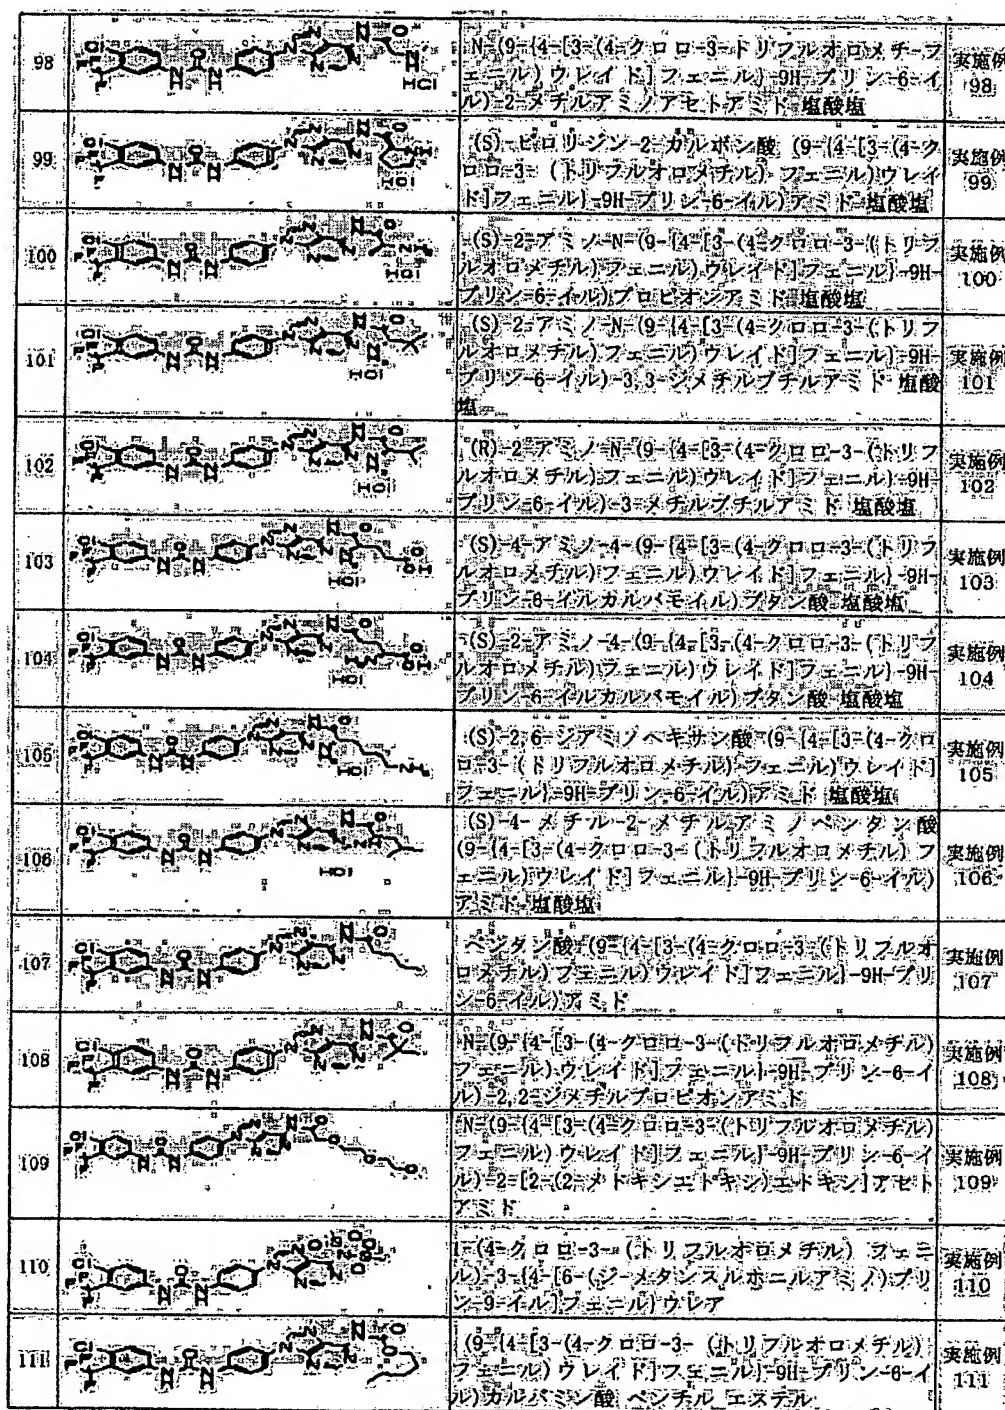 98
N-(9-{4-[3-(4-クロロ-3-トリフルオロメチ-フ
ェニル)ウレイド]フェニル}-9H-プリン-6-イ
ル)-2-メチルアミノアセトアミド 塩酸塩
実施例
98
99
(S)-ピロリジン-2-カルボン酸 (9-{4-[3-(4-ク
ロロ-3-(トリフルオロメチル)フェニル)ウレイ
ド]フェニル}-9H-プリン-6-イル)アミド 塩酸塩
実施例
99
100
(S)-2-アミノ-N-(9-{4-[3-(4-クロロ-3-(トリフ
ルオロメチル)フェニル)ウレイド]フェニル}-9H-
プリン-6-イル)プロピオンアミド 塩酸塩
実施例
100
101
(S)-2-アミノ-N-(9-{4-[3-(4-クロロ-3-(トリフ
ルオロメチル)フェニル)ウレイド]フェニル}-9H-
プリン-6-イル)-3,3-ジメチルブチルアミド 塩酸
塩
実施例
101
102
(R)-2-アミノ-N-(9-{4-[3-(4-クロロ-3-(トリフ
ルオロメチル)フェニル)ウレイド]フェニル}-9H-
プリン-6-イル)-3-メチルブチルアミド 塩酸塩
実施例
102
103
(S)-4-アミノ-4-(9-{4-[3-(4-クロロ-3-(トリフ
ルオロメチル)フェニル)ウレイド]フェニル}-9H-
プリン-6-イルカルバモイル)ブタン酸 塩酸塩
実施例
103
104
(S)-2-アミノ-4-(9-{4-[3-(4-クロロ-3-(トリフ
ルオロメチル)フェニル)ウレイド]フェニル}-9H-
プリン-6-イルカルバモイル)ブタン酸 塩酸塩
実施例
104
105
(S)-2,6-ジアミノヘキサン酸 (9-{4-[3-(4-クロ
ロ-3-(トリフルオロメチル)フェニル)ウレイド]
フェニル}-9H-プリン-6-イル)アミド 塩酸塩
実施例
105
106
(S)-4-メチル-2-メチルアミノペンタン酸
(9-{4-[3-(4-クロロ-3-(トリフルオロメチル)フ
ェニル)ウレイド]フェニル}-9H-プリン-6-イル)
アミド 塩酸塩
実施例
106
107
ペンタン酸 (9-{4-[3-(4-クロロ-3-(トリフルオ
ロメチル)フェニル)ウレイド]フェニル}-9H-プリ
ン-6-イル)アミド
実施例
107
108
N-(9-{4-[3-(4-クロロ-3-(トリフルオロメチル)
フェニル)ウレイド]フェニル}-9H-プリン-6-イ
ル)-2,2-ジメチルプロピオンアミド
実施例
108
109
N-(9-{4-[3-(4-クロロ-3-(トリフルオロメチル)
フェニル)ウレイド]フェニル}-9H-プリン-6-イ
ル)-2-[2-(2-メトキシエトキシ)エトキシ]アセト
アミド
実施例
109
110
1-(4-クロロ-3-(トリフルオロメチル)フェニ
ル)-3-{4-[6-(ジ-メタンスルホニルアミノ)プリ
ン-9-イル]フェニル}ウレア
実施例
110
111
(9-{4-[3-(4-クロロ-3-(トリフルオロメチル)
フェニル)ウレイド]フェニル}-9H-プリン-6-イ
ル)カルバミン酸 ペンチル エステル
実施例
111